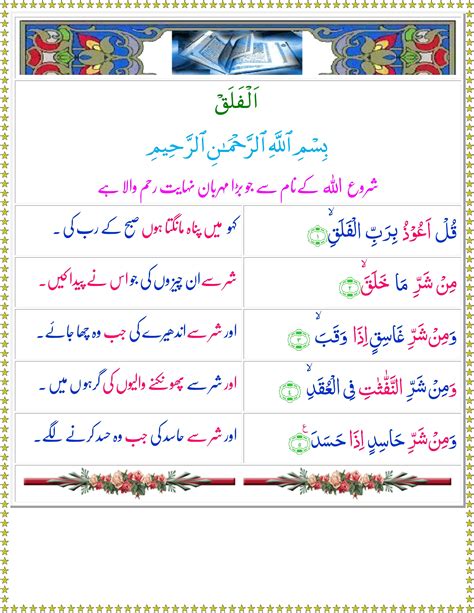 اَلْفَلَقْ
بِسْمِ اللّٰهِ الرَّحْمٰنِ الرَّحِيْمِ
شروع اللہ کے نام سے جو بڑا مہربان نہایت رحم والا ہے
قُلْ اَعُوْذُ بِرَبِّ الْفَلَقِۙ ۱ کہو میں پناہ مانگتا ہوں صبح کے رب کی ۔
مِنْ شَرِّ مَا خَلَقَۙ ۲ شر سے ان چیزوں کی جو اس نے پیدا کیں۔
وَمِنْ شَرِّ غَاسِقٍ اِذَا وَقَبَۙ ۳ اور شر سے اندھیرے کی جب وہ چھا جائے۔
وَمِنْ شَرِّ النَّفّٰثٰتِ فِي الْعُقَدِۙ ۴ اور شر سے پھونکنے والیوں کی گرہوں میں ۔
وَمِنْ شَرِّ حَاسِدٍ اِذَا حَسَدَ ۵ اور شر سے حاسد کی جب وہ حسد کرنے لگے۔